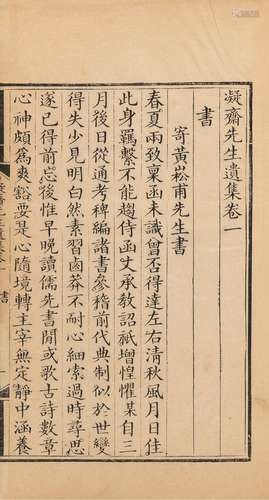 凝齋先生遺集卷一
書
寄黃崧甫先生書
春夏兩致稟函未識曾否得達左右清秋風月日佳
此身羈繫不能趨侍函丈承教詔祇增惶懼某自三
月後日從通考稗編諸書參稽前代典制似於世變
得失少見明白然素習鹵莽不耐心細索過時尋思
遂已得前忘後惟早晚讀儒先書閒或歌古詩數章
心神頗爲爽豁要是心隨境轉主宰無定靜中涵養